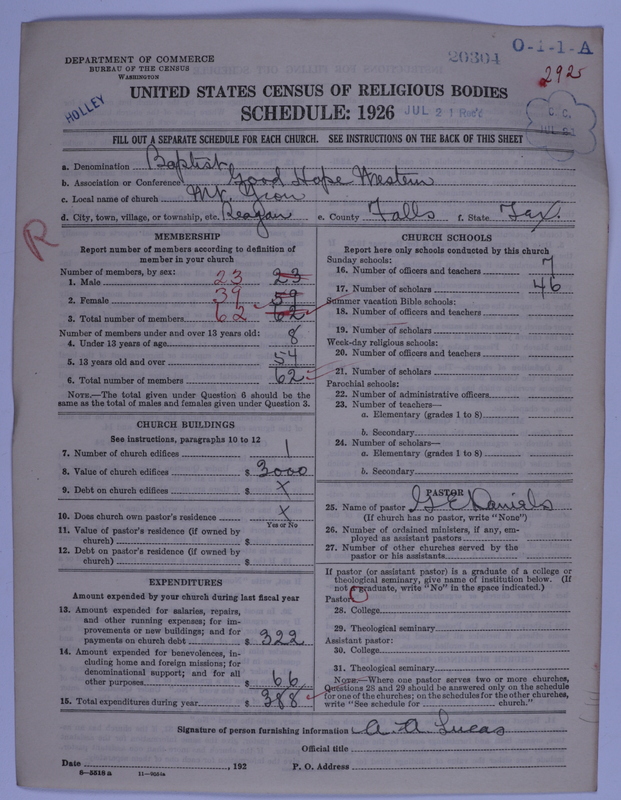 DEPARTMENT OF COMMERCE
BUREAU OF THE CENSUS
WASHINGTON
20304
O-1-1-A
2925
HOLLEY
UNITED STATES CENSUS OF RELIGIOUS BODIES
SCHEDULE: 1926
JUL 21 Rec'd
C. C.
FILL OUT A SEPARATE SCHEDULE FOR EACH CHURCH. SEE INSTRUCTIONS ON THE BACK OF THIS SHEET
a. Denomination Baptist
b. Association or Conference Good Hope Western
c. Local name of church Mt. Zion
d. City, town, village, or township, etc. Reagan e. County Falls f. State Tex.
R
MEMBERSHIP
Report number of members according to definition of member in your church
Number of members, by sex:
1. Male 23 23
2. Female 39 59
3. Total number of members 62 62
Number of members under and over 13 years old:
4. Under 13 years of age 8
5. 13 years old and over 54
6. Total number of members 62
NOTE.—The total given under Question 6 should be the
same as the total of males and females given under Question 3.
CHURCH BUILDINGS
See instructions, paragraphs 10 to 12
7. Number of church edifices 1
8. Value of church edifices $ 3000
9. Debt on church edifices $ X
10. Does church own pastor's residence X
Yes or No
11. Value of pastor's residence (if owned by
church) $
12. Debt on pastor's residence (if owned by
church) $
EXPENDITURES
Amount expended by your church during last fiscal year
13. Amount expended for salaries, repairs,
and other running expenses; for im-
provements or new buildings; and for
payments on church debt $ 322
14. Amount expended for benevolences, in-
cluding home and foreign missions; for
denominational support; and for all
other purposes $ 66
15. Total expenditures during year $ 388
CHURCH SCHOOLS
Report here only schools conducted by this church
Sunday schools:
16. Number of officers and teachers 7
17. Number of scholars 46
Summer vacation Bible schools:
18. Number of officers and teachers
19. Number of scholars
Week-day religious schools:
20. Number of officers and teachers
21. Number of scholars
Parochial schools:
22. Number of administrative officers
23. Number of teachers—
a. Elementary (grades 1 to 8)
b. Secondary
24. Number of scholars—
a. Elementary (grades 1 to 8)
b. Secondary
PASTOR
25. Name of pastor G E Daniels
(If church has no pastor, write "None")
26. Number of ordained ministers, if any, em-
ployed as assistant pastors
27. Number of other churches served by the
pastor or his assistants
If pastor (or assistant pastor) is a graduate of a college or
theological seminary, give name of institution below. (If
not a graduate, write "No" in the space indicated.)
Pastor:
28. College
29. Theological seminary
Assistant pastor:
30. College
31. Theological seminary
NOTE.—Where one pastor serves two or more churches,
Questions 28 and 29 should be answered only on the schedule
for one of the churches; on the schedules for the other churches,
write "See schedule for church."
Signature of person furnishing information A. A. Lucas
Official title
Date , 192 P. O. Address
8-5518a 11-9554a